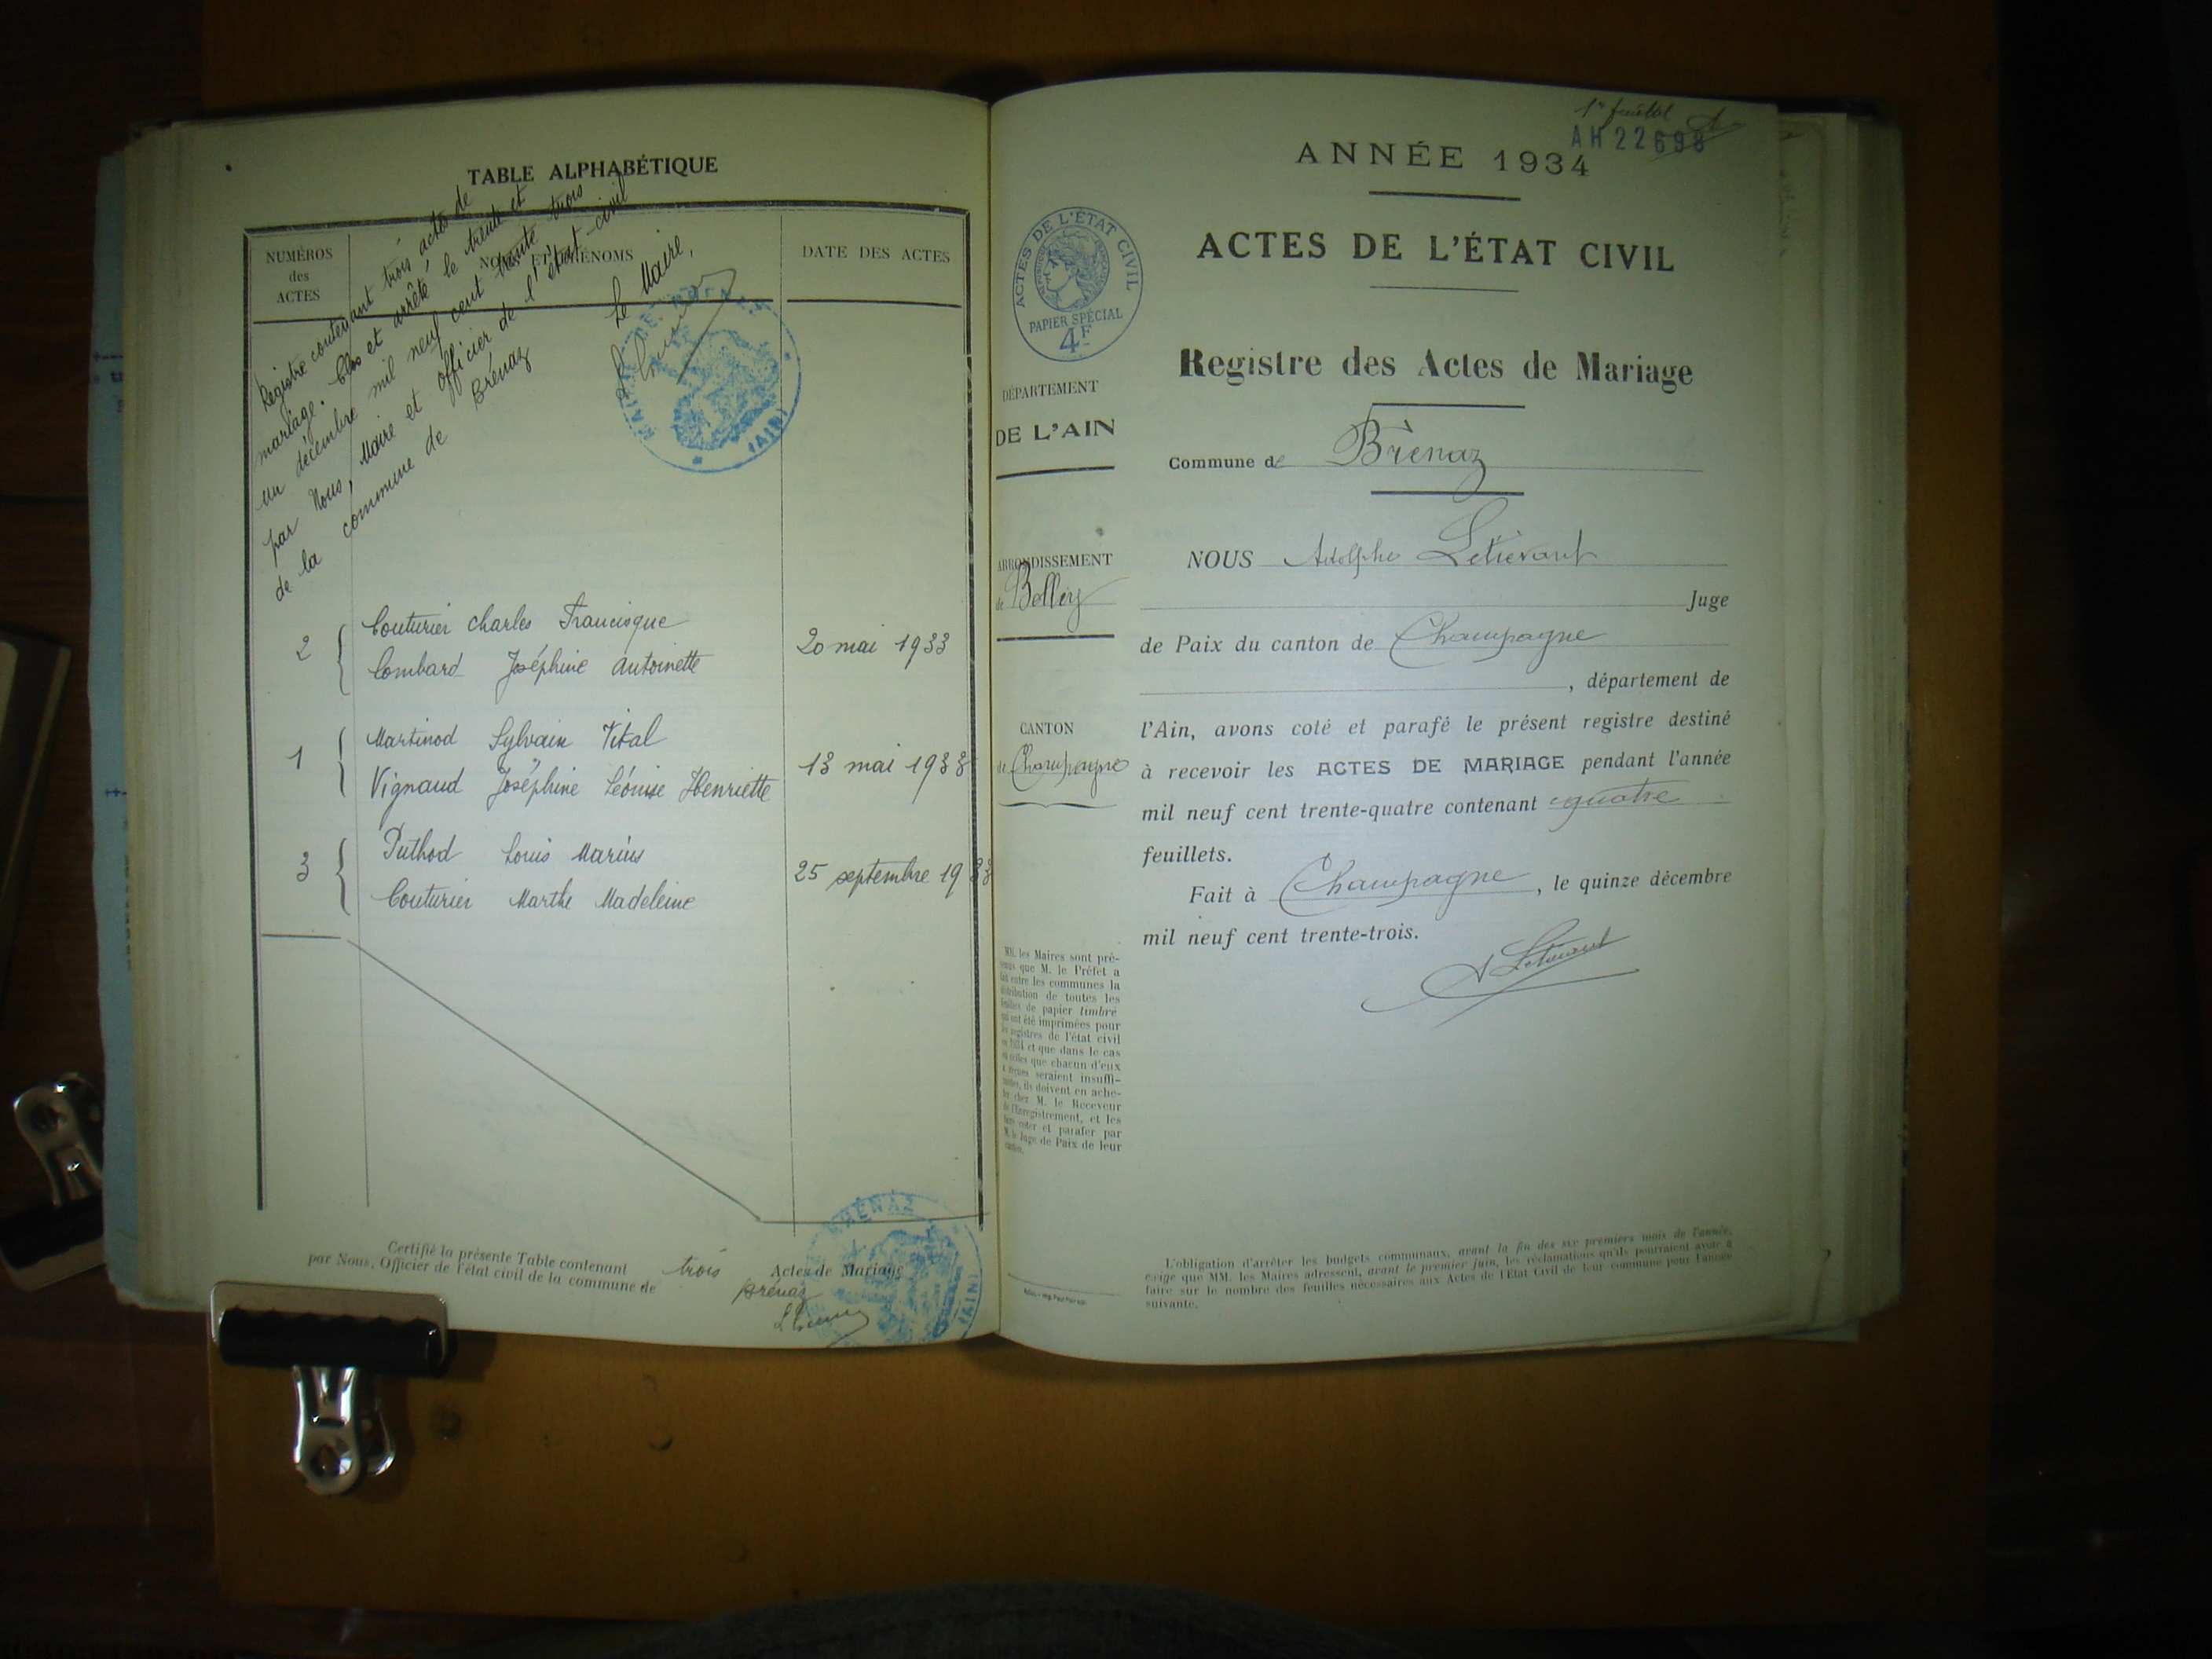 TABLE ALPHABÉTIQUE
NUMÉROS
des
ACTES
NOMS ET PRÉNOMS
DATE DES ACTES
Registre contenant trois actes de
mariage. Clos et arrêté le trente et
un décembre mil neuf cent trente trois
par Nous, Maire et officier de l'état-civil
de la commune de Brénaz
Le Maire,
MAIRIE DE BRÉNAZ
(AIN)
2
Couturier Charles Francisque
Lombard Joséphine Antoinette
20 mai 1933
1
Martinod Sylvain Vital
Vignaud Joséphine Léonise Henriette
13 mai 1933
3
Puthod Louis Marius
Couturier Marthe Madeleine
25 septembre 1933
Certifié la présente Table contenant trois Actes de Mariage
par Nous, Officier de l'état civil de la commune de Brénaz
BRÉNAZ
(AIN)
1er feuillet
AH 22698
ANNÉE 1934
ACTES DE L'ÉTAT CIVIL
ACTES DE L'ÉTAT CIVIL
PAPIER SPÉCIAL
4F
Registre des Actes de Mariage
DÉPARTEMENT
DE L'AIN
Commune de Brénaz
ARRONDISSEMENT
de Belley
NOUS Adolphe Letiévant
Juge
de Paix du canton de Champagne
, département de
CANTON
de Champagne
l'Ain, avons coté et parafé le présent registre destiné
à recevoir les ACTES DE MARIAGE pendant l'année
mil neuf cent trente-quatre contenant quatre
feuillets.
Fait à Champagne, le quinze décembre
mil neuf cent trente-trois.
A Letiévant
MM. les Maires sont pré-
venus que M. le Préfet a
fait entre les communes la
distribution de toutes les
feuilles de papier timbré
qui ont été imprimées pour
les registres de l'état civil
de 1934 et que dans le cas
où celles que chacun d'eux
a reçues seraient insuffi-
santes, ils doivent en ache-
ter chez M. le Receveur
de l'Enregistrement, et les
faire coter et parafer par
M. le Juge de Paix de leur
canton.
L'obligation d'arrêter les budgets communaux, avant la fin des six premiers mois de l'année,
exige que MM. les Maires adressent, avant le premier juin, les réclamations qu'ils pourraient avoir à
faire sur le nombre des feuilles nécessaires aux Actes de l'État Civil de leur commune pour l'année
suivante.